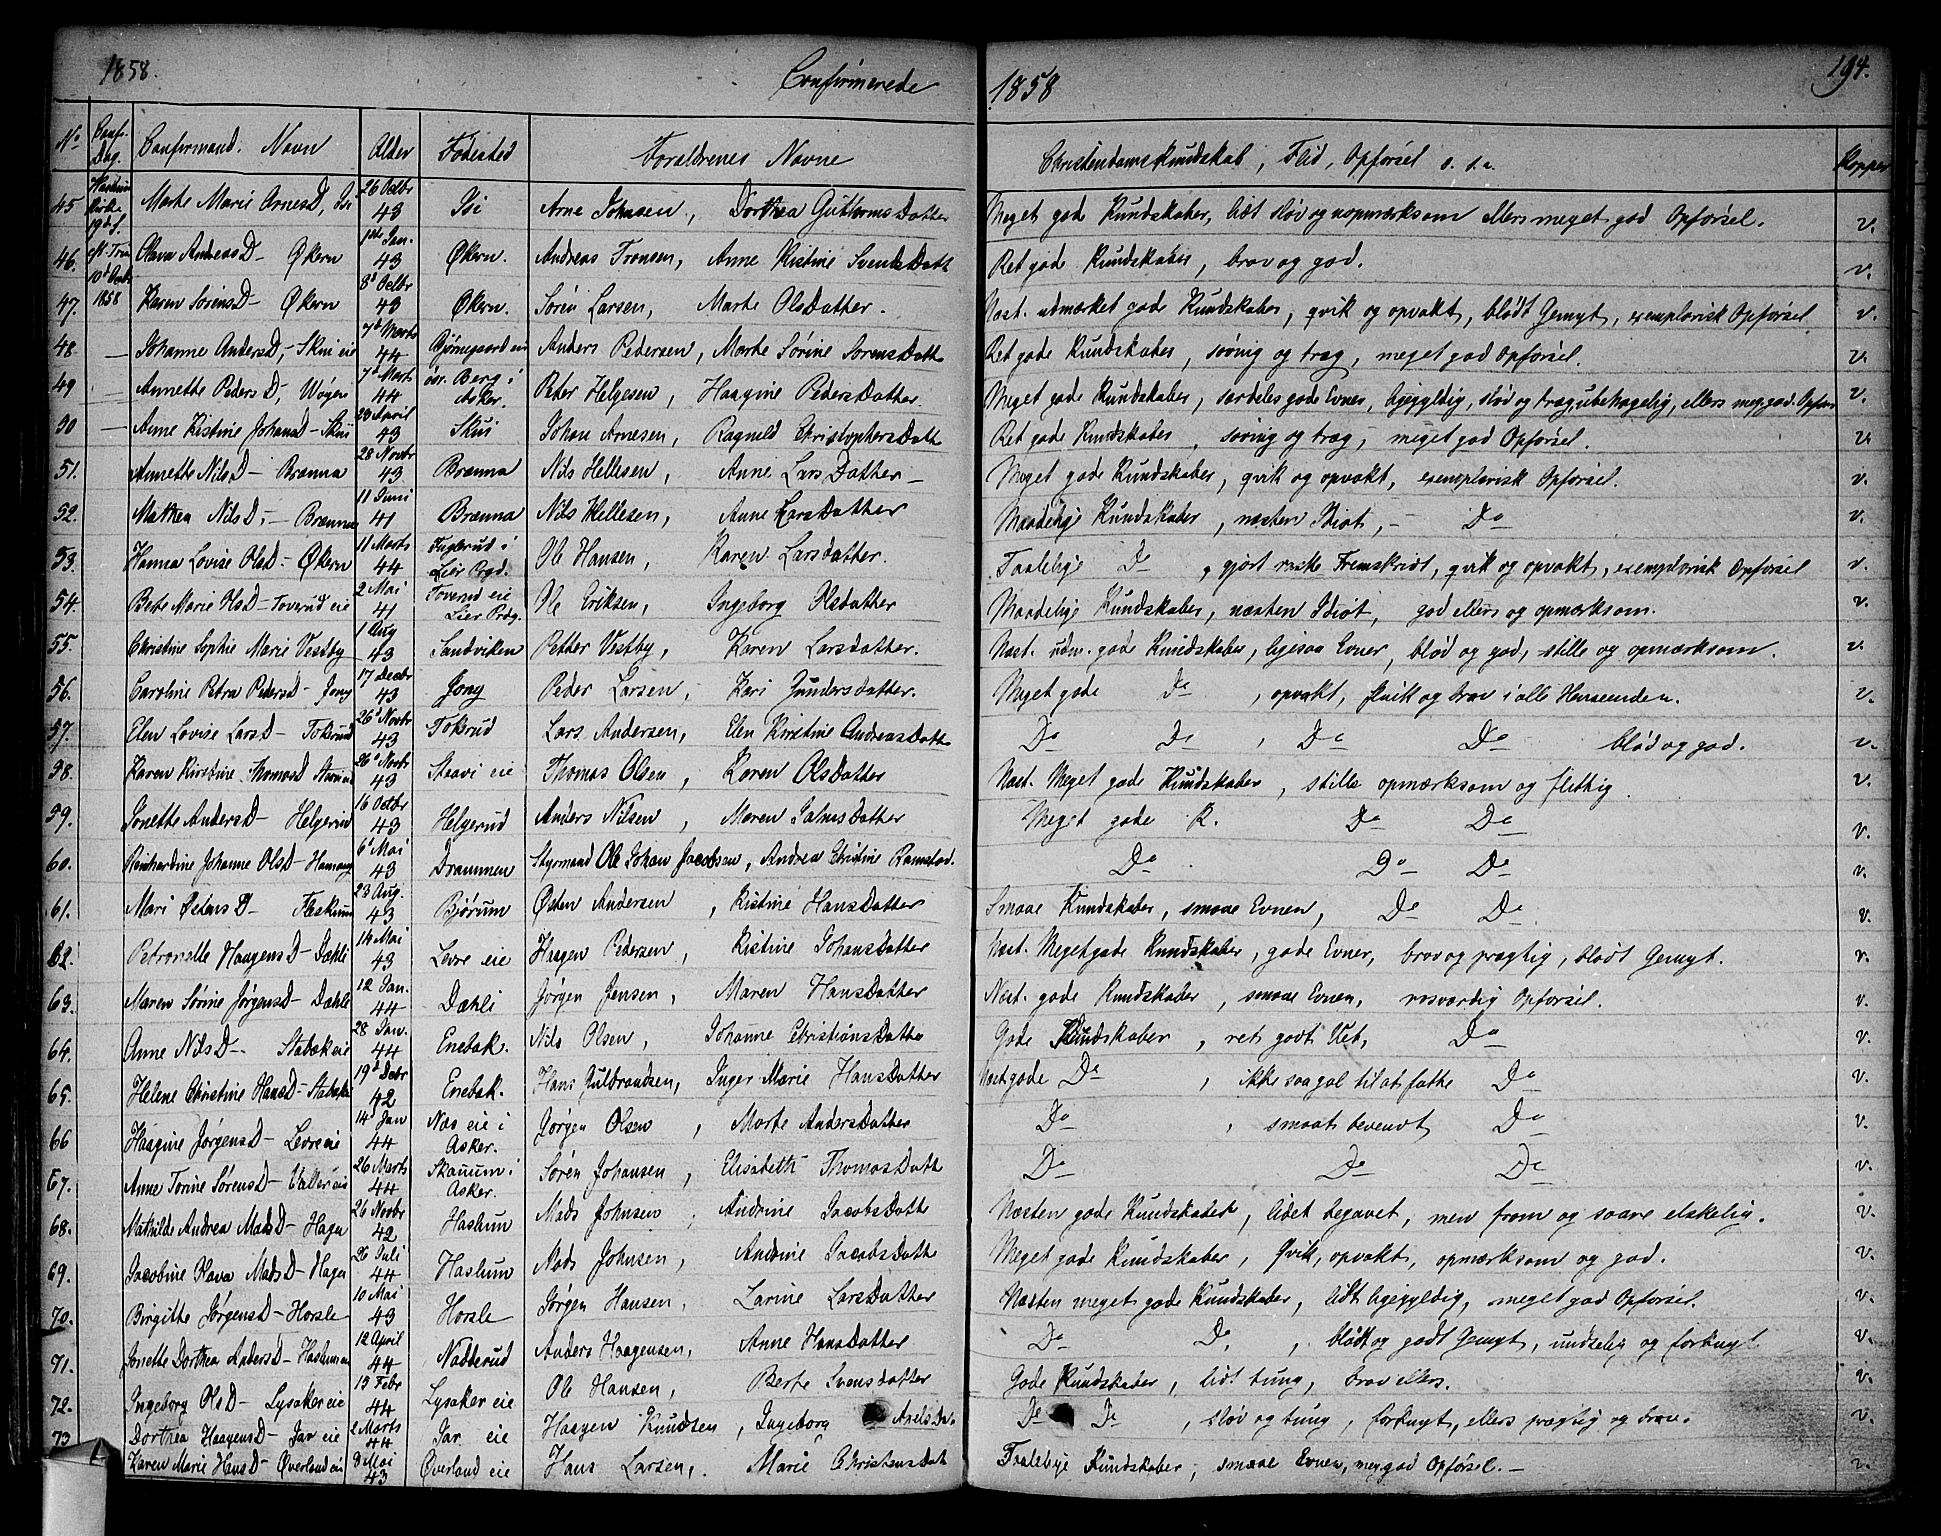 1858. Confirmerede 1858 194.
No. Conf. Dag. Confirmand. Navn Alder Fødested Forældrenes Navne Christendomskundskab, Flid, Opførsel o. s. v. Kopper
45 Haslum Kirke 19d S. Marthe Marie ArnesD, Isi 26 Octbr 43 Isi Arne Johnsen, Dorthea GuttormsDatter Meget gode Kundskaber, lidt sløv og uopmærksom ellers meget god Opførsel. v.
46. ef. Trin 10d Octb. Olava AndreasD- Økern 1ste Jan. 43 Økern. Andreas Tronsen, Anne Kistine SvendsDatt Ret gode Kundskaber, brav og god. v.
47. 1858 Karen SørensD- Økern 8d Octbr 43 Økern. Sören Larsen, Marthe OlsDather. Næst. udmærket gode Kundskaber, qvik og opvakt, blødt Gemyt, exemplarisk Opførsel v.
48. — Johanne AndersD,- Skui eie 7d Marts 44 Bjørnegaard eie Anders Pedersen, Marthe Sørine SorensDatt Ret gode Kundskaber, søvnig og træg, meget god Opførsel. v.
49 — Annette PedersD, Wøyen 7d Marts 44 øsr. Berg i Asker. Peter Helgesen, Haagine PedersDatter. Meget gode Kundskaber, særdeles gode Evner, ligegyldig, sløv og træg, ubehagelig, ellers meg. god. Opførs v.
50 — Anne Kistine JohansD- Skui 23 April 43 Skui Johan Arnesen, Ragnild ChristophersDatt Ret gode Kundskaber, søvnig og træg, meget god Opførsel. v
51. Annette NilsD- Brænna 28 Novbr 43 Brænna Nils Hellesen, Anne LarsDatter - Meget gode Kundskaber, qvik og opvakt, exemplarisk Opførsel. v.
52. Mathea NilsD,- Brænna 11 Juni 41 Brænna Nils Hellesen, Anne LarsDatter Maadelige Kundskaber, næsten Idiot, - Do v.
53. Hanna Lovise OlsD- Økern 11 Marts 44 Fuglerud i Lier Prgd. Ole Hansen, Karen Larsdatter. Taalelige Do, gjort raske Fremskridt, qvik og opvakt, exemplarisk Opførsel v.
54. Berte Marie OlsD- Toverud eie 2 Mai 41 Toverud eie Lier Prdg. Ole Eriksen, Ingeborg Olsdatter Maadelige Kundskaber, næsten Idiot, god ellers og opmærksom. v.
55. Christine Sophie Marie Vestby 1 Aug 43 Sandviken Petter Vestby, Karen Larsdatter. Næst. udm. gode Kundskaber, ligesaa Evner, blød og god, stille og opmærksom. v.
56. Caroline Petra PedersD- Jong 17 Decbr 43 Jong Peder Larsen, Kari Gundersdatter. Meget gode Do, opvakt, qvik og brav i alle Henseender. v.
57. Elen Lovise LarsD- Tokerud 26d Novbr 43 Tokerud Lars Andersen, Elen Kirstine AndreasDatt Do Do, Do Do blød og god. v.
58. Karen Kirstine ThomasD 26d Novbr 43 Steavi eie Thomas Olsen, Karen OlsDatter Næst. Meget gode Kundskaber, stille opmærksom og flittig. v.
59. Jonette AndersD- Helgerud 16 Octbr 43 Helgerud Anders Nilsen, Maren Datter Meget gode K. Do Do v.
60. Reinhardine Johanne OlsD- Hamang 6d Mai 43 Drammen Styrmand Ole Johan Jacobsen, Andrea Christine Ramstad. Do Do Do v.
61. Mari ØstensD- Fleskum 23 Aug. 43 Bjørum Østen Andersen, Kistine HansDatter Smaae Kundskaber, smaae Evner, Do Do v.
62. Petronelle HaagensD- Dæhli 14 Mai 43 Levre eie Haagen Pedersen, Kistine JohansDatter Næst. Meget gode Kundskaber, gode Evner, brav og prægtig, blødt Gemyt. v.
63. Maren Sørine JørgensD- Dæhli 12 Jan. 44 Dæhli Jørgen Jensen, Maren HansDatter Næst. gode Kundskaber, smaae Evner, rosværdig Opførsel. v.
64. Anne NilsD-. Stabæk eie 28 Jan. 44 Enebak. Nils Olsen, Johanne ChristiansDatter Gode Kundskaber, ret godt Vet, Do v.
65. Helene Christine HansD- Stabæk 19d Decbr 42 Enebak. Hans Gulbrandsen, Inger Marie HansDatter Næst gode Do, ikke saa gal til at fatte Do v.
66 Haagine JørgensD- Levre eie 14d Jan 44 Næs eie i Asker. Jørgen Olsen, Marthe AndersDatter Do, smaat bevendt Do v.
67. Anne Torine SørensD- Valler eie 26 Marts 44 Skauum i Asker. Sören Johansen, Elisabeth ThomasDatt Do Do Do v.
68. Mathilde Andrea MadsD- Haga 26 Novbr 42 Haslum Mads Johnsen, Andrine JacobsDatte Næsten gode Kundskaber, lidet begavet, men from og saare elskelig. v.
69. Jacobine Olava MadsD- Haga 26 Juli 44 Haslum Mads Johnsen, Andrine JacobsDatt Meget gode Kundskaber, Qvik, opvakt, opmærksom og god. v.
70. Birgitte JørgensD- Horsle 10 Mai 43 Horsle Jørgen Hansen, Larine LarsDatter Næsten meget gode Kundskaber, lidt ligegyldig, meget god Opførsel. v.
71. Jonette Dorthea AndersD- Haslum 12 April 44 Nadderud Anders Haagensen, Anne HansDatter Do Do, blødt og godt Gemyt, undselig og forknyt v.
72. Ingeborg OlsD- Lysaker eie 15 Febr 44 Lysaker eie Ole Hansen, Berte SvensDatter Gode Kundskaber, lidt tung, brav ellers. v.
73 Dorthea HaagensD- Jar eie 2 Marts 44 Jar eie Haagen Knudsen, Ingeborg AxelsDa. Do Do, sløv og tung, forknyt, ellers prægtig og brav. v.
Karen Marie HansD- Øverland eie Mai 43 Øverland eie Hans Larsen, Marie ChristensDat Taalelige Kundskaber, smaae Evner, meg god Opførsel. - v.